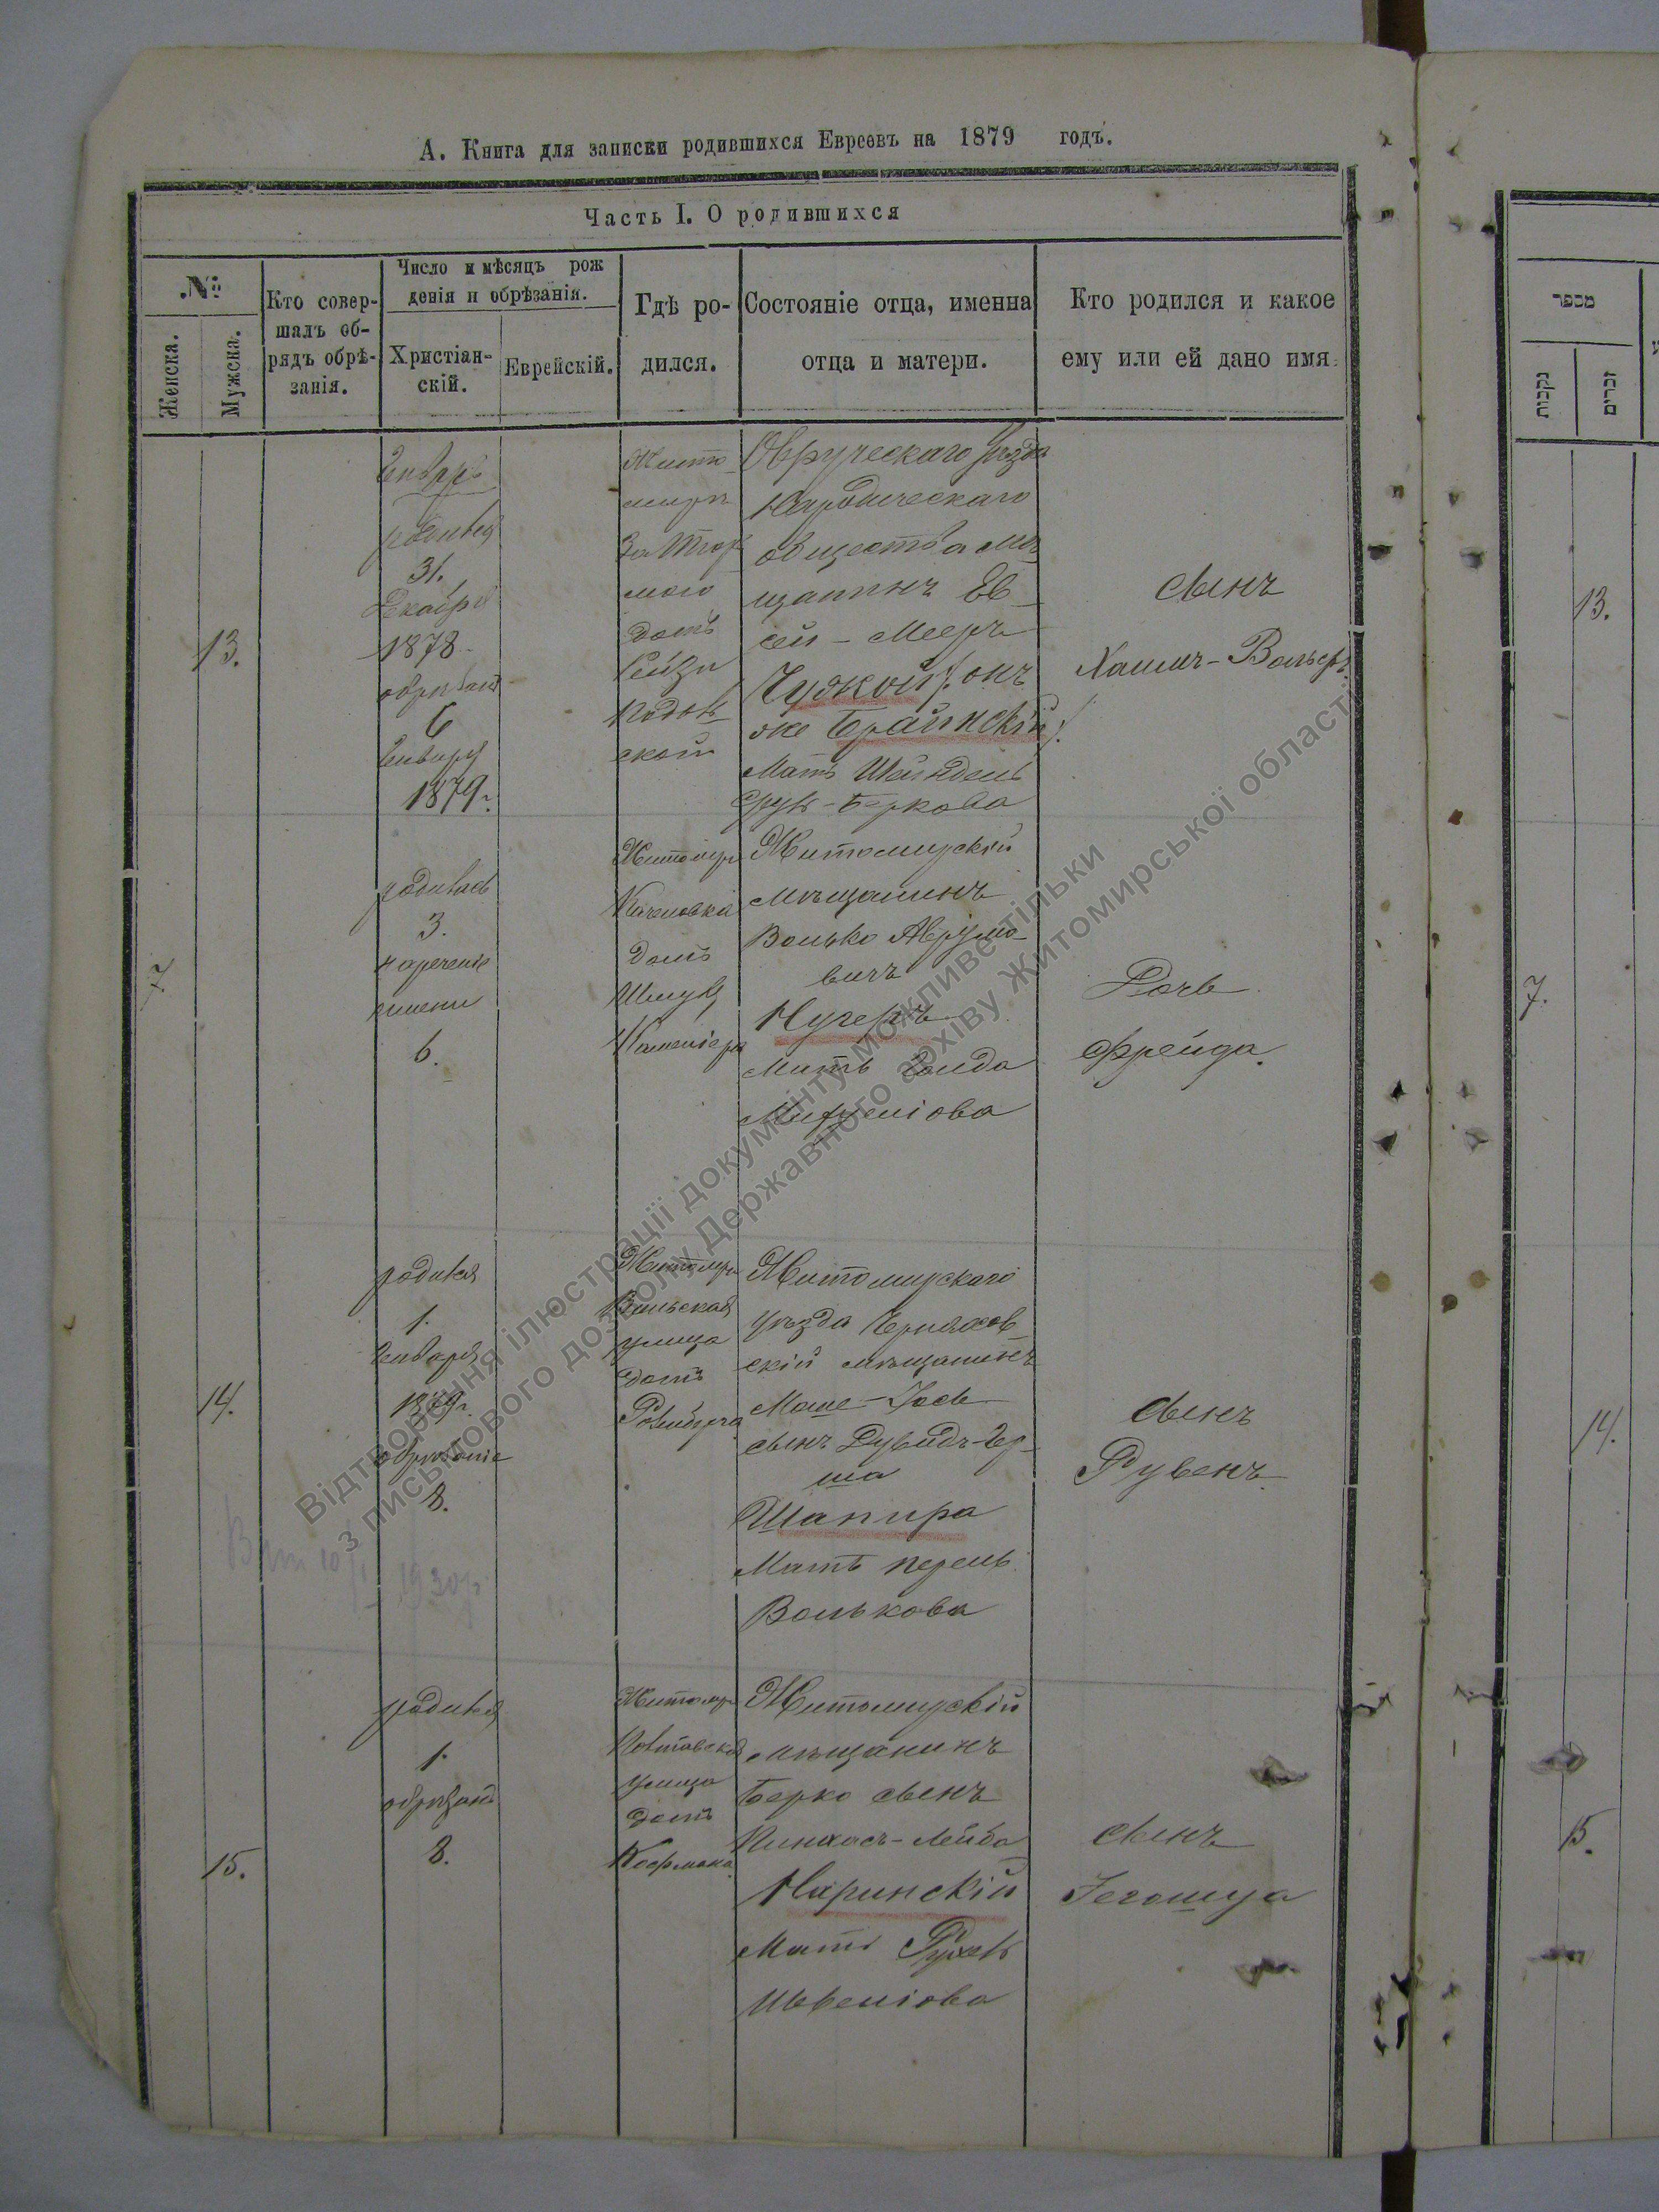 А. Книга для записки родившихся Евреевъ на 1879 годъ.
Часть I. О родившихся
№
Женска.
Мужска.
Кто совер-
шалъ об-
рядъ обрѣ-
занія.
Число и мѣсяцъ рож
денія и обрѣзанія.
Христіан-
скій.
Еврейскій.
Гдѣ ро-
дился.
Состояніе отца, именна
отца и матери.
Кто родился и какое
ему или ей дано имя.
13.
Январь
родився
31.
Декабря
1878
6
Января
1879г.
Жито
миръ
домъ
ской
Овручскаго уѣзда
Народическаго
общества мѣ
щанинъ Ев
сей-Мееръ
Чудкой /: онъ
же Брайнскій :/
Мать Шейндель
Беркова
сынъ
Хаимъ-Вольфъ
7
родилась
3.
нареченіе
имени
6.
Житомиръ
домъ
Житомирскій
мѣщанинъ
Волько Аврумо-
вичъ
Кугель
Мать Голда
Дочь
Фрейда.
14.
родився
1.
Января
1879г.
обрѣзаніе
8.
Житомиръ
Вильская
улица
домъ
Житомирскаго
уѣзда Черняхов
скій мѣщанинъ
Моше-Іось
сынъ Дувидъ-Гер-
ша
Шапира
Мать Перель
Волькова
сынъ
Рувенъ
1930г.
15.
родився
1.
8.
Житомиръ
улица
домъ
Житомирскій
мѣщанинъ
Берко сынъ
Пинхась-Лейба
Наринскій
Мать
сынъ
Іегошуа
מספר
נקבות
זכרים
13.
7.
14.
15.
Відтворення ілюстрації документу можливе тільки
з письмового дозволу Державного архіву Житомирської області